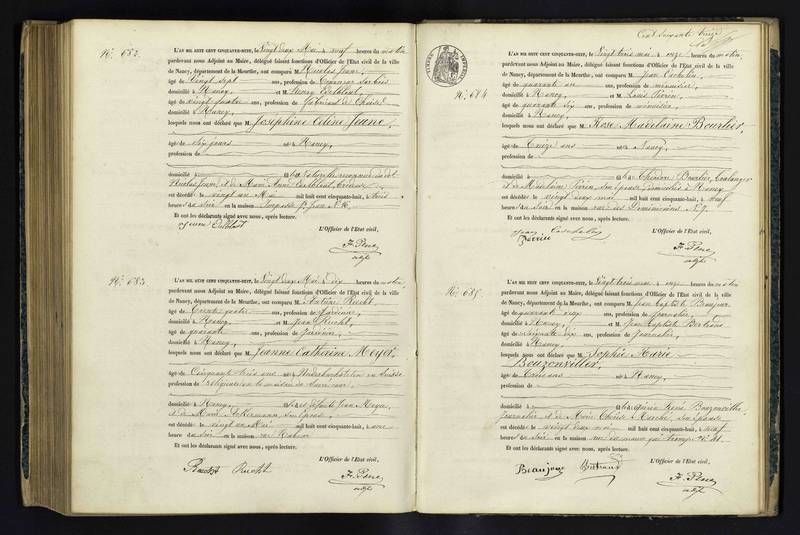 N° 682.
L'AN MIL HUIT CENT CINQUANTE-HUIT, le Vingt deux Mai à neuf heures du matin
pardevant nous Adjoint au Maire, délégué faisant fonctions d'Officier de l'Etat civil de la ville
de Nancy, département de la Meurthe, ont comparu M. Nicolas Jeune,
âgé de Vingt sept ans, profession de
domicilié à Nancy, et M.
âgé de vingt quatre ans, profession de fabricant de
domicilié à Nancy,
lesquels nous ont déclaré que M. Joséphine Celine Jeune,
âgé de dix jours né à Nancy,
profession de
domicilié à fille naturelle reconnue du dit
Nicolas Jeune, et de Marie Anne
est décédé le vingt un Mai mil huit cent cinquante-huit, à trois
heures du soir en la maison Impasse St Jean N°
Et ont les déclarants signé avec nous, après lecture.
Jeune
L'Officier de l'Etat civil,
adjt
N° 683.
L'AN MIL HUIT CENT CINQUANTE-HUIT, le Vingt deux Mai à dix heures du matin,
pardevant nous Adjoint au Maire, délégué faisant fonctions d'Officier de l'Etat civil de la ville
de Nancy, département de la Meurthe, ont comparu M. Antoine Ruecht,
âgé de Trente quatre ans, profession de Jardinier,
domicilié à Nancy, et M. Jean Ruecht,
âgé de quarante ans, profession de Jardinier,
domicilié à Nancy,
lesquels nous ont déclaré que M. Jeanne Catherine Meyer,
âgé de Cinquante trois ans né à en Suisse
profession de religieuse
domicilié à Nancy, fille de défunts Jean Meyer,
et de Marie Ackermann, son épouse,
est décédé le vingt un Mai mil huit cent cinquante-huit, à onze
heures du soir en la maison rue
Et ont les déclarants signé avec nous, après lecture.
Ruecht Ruecht
L'Officier de l'Etat civil,
adjt
Cent soixante treize
TIMBRE IMPÉRIAL
N° 684.
L'AN MIL HUIT CENT CINQUANTE-HUIT, le Vingt trois mai à onze heures du matin,
pardevant nous Adjoint au Maire, délégué faisant fonctions d'Officier de l'Etat civil de la ville
de Nancy, département de la Meurthe, ont comparu M. Jean
âgé de quarante un ans, profession de menuisier,
domicilié à Nancy, et M. Louis Perrin,
âgé de quarante six ans, profession de menuisier,
domicilié à Nancy,
lesquels nous ont déclaré que M. Rose Madelaine Bourlier,
âgé de Treize ans né à Nancy,
profession de
domicilié à fille de Bourlier, boulanger
et de Madelaine Perrin, son épouse, domiciliés à Nancy
est décédé le vingt deux mai mil huit cent cinquante-huit, à neuf
heures du soir en la maison rue des Dominicains N° 7.
Et ont les déclarants signé avec nous, après lecture.
Perrin
L'Officier de l'Etat civil,
adjt
N° 685.
L'AN MIL HUIT CENT CINQUANTE-HUIT, le Vingt trois mai à onze heures du matin
pardevant nous Adjoint au Maire, délégué faisant fonctions d'Officier de l'Etat civil de la ville
de Nancy, département de la Meurthe, ont comparu M. Jean Baptiste Beaujour
âgé de quarante deux ans, profession de Journalier,
domicilié à Nancy, et M. Jean Baptiste Bertrand
âgé de soixante dix ans, profession de Journalier,
domicilié à Nancy,
lesquels nous ont déclaré que M. Sophie Marie
Bouzonviller,
âgé de Trois ans né à Nancy,
profession de
domicilié à fille de René Bouzonviller,
journalier et de Marie Thérèse son épouse
est décédé le vingt deux mai mil huit cent cinquante-huit, à neuf
heures du soir en la maison rue du maure qui trompe N°
Et ont les déclarants signé avec nous, après lecture.
Beaujour Bertrand
L'Officier de l'Etat civil,
adjt